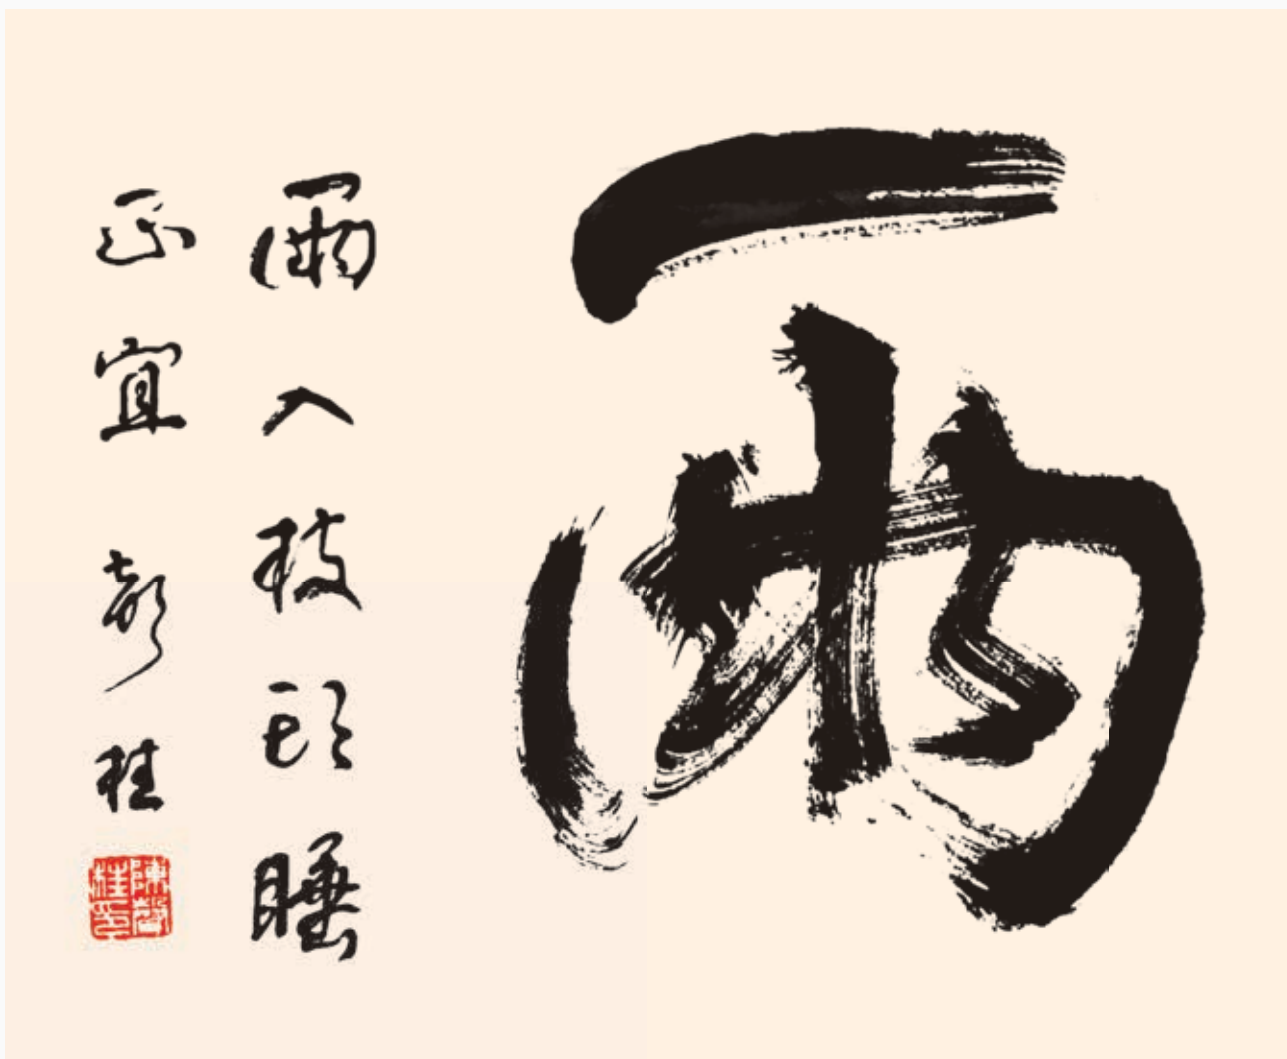 雨
雨入枝頭睡
正宜 聲桂
陳聲桂印